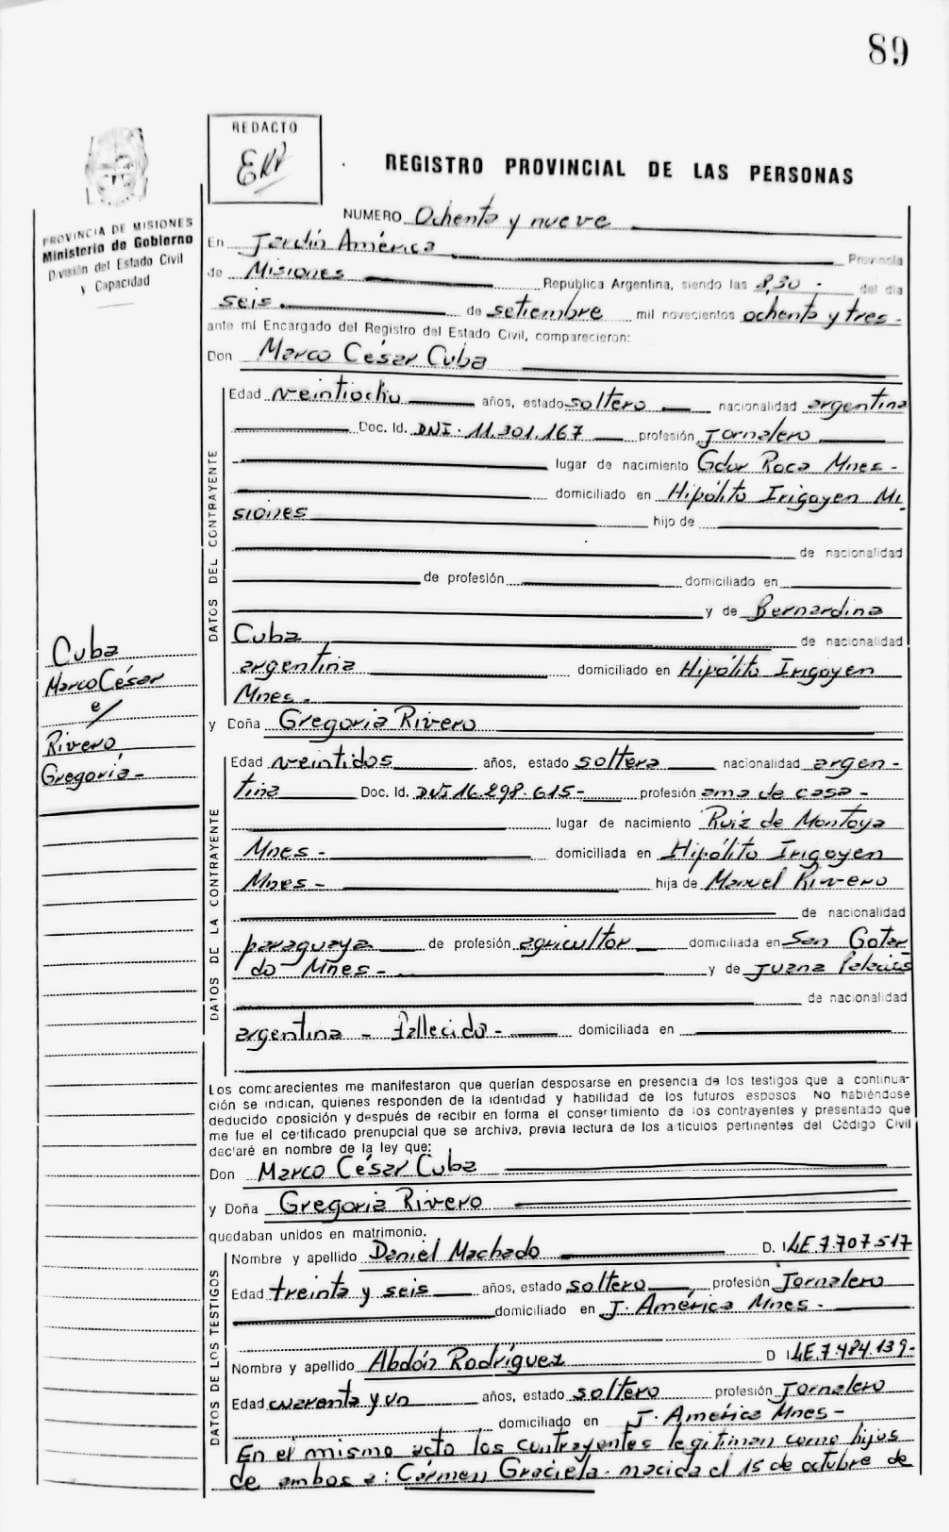 89
REDACTO
REGISTRO PROVINCIAL DE LAS PERSONAS
PROVINCIA DE MISIONES
Ministerio de Gobierno
División del Estado Civil
y Capacidad
NUMERO Ochenta y nueve
En Jardín América Provincia
de Misiones República Argentina, siendo las 8,30 del día
seis de setiembre mil novecientos ochenta y tres.
ante mí Encargado del Registro del Estado Civil, comparecieron:
Don Marco César Cuba
DATOS DEL CONTRAYENTE
Edad veintiocho años, estado soltero nacionalidad argentina
Doc. Id. DNI. 11.301.167 profesión Jornalero
lugar de nacimiento Gdor Roca Mnes-
domiciliado en Hipólito Irigoyen Mi
siones hijo de
de nacionalidad
de profesión domiciliado en
y de Bernardina
Cuba de nacionalidad
argentina domiciliado en Hipólito Irigoyen
Mnes.
y Doña Gregoria Rivero
Cuba
Marco César
e/
Rivero,
Gregoria-
DATOS DE LA CONTRAYENTE
Edad veintidos años, estado soltera nacionalidad argen-
tina Doc. Id. DNI 16.298.615- profesión ama de casa-
lugar de nacimiento Ruiz de Montoya
Mnes- domiciliada en Hipólito Irigoyen
Mnes- hija de Manuel Rivero
de nacionalidad
paraguaya de profesión agricultor domiciliada en San Gotar
do Mnes- y de Juana Palacios
de nacionalidad
argentina - fallecida- domiciliada en
Los comparecientes me manifestaron que querían desposarse en presencia de los testigos que a continua-
ción se indican, quienes responden de la identidad y habilidad de los futuros esposos. No habiéndose
deducido oposición y después de recibir en forma el consentimiento de los contrayentes y presentado que
me fue el certificado prenupcial que se archiva, previa lectura de los artículos pertinentes del Código Civil
declaré en nombre de la ley que:
Don Marco César Cuba
y Doña Gregoria Rivero
quedaban unidos en matrimonio.
DATOS DE LOS TESTIGOS
Nombre y apellido Daniel Machado D. I. LE 7.707.517
Edad treinta y seis años, estado soltero profesión Jornalero
domiciliado en J. América Mnes.
Nombre y apellido Abdón Rodríguez D I. LE.7.484.139-
Edad cuarenta y un años, estado soltero profesión Jornalero
domiciliado en J. América Mnes-
En el mismo acto los contrayentes legitiman como hijos
de ambos a: Cármen Graciela. nacida el 15 de octubre de